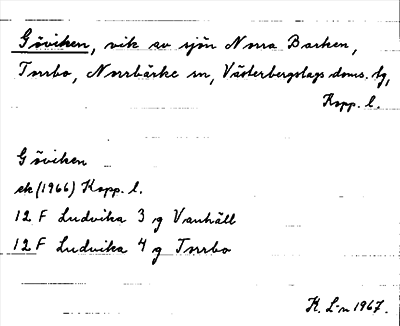 Göviken, vik av sjön Norra Barken,
Torrbo, Norrbärke sn, Västerbergslags doms. tg,
Kopp. l.
Göviken
ek (1966) Kopp. l.
12 F Ludvika 3 g Vanhäll
12 F Ludvika 4 g Torrbo
K. L-n 1967.